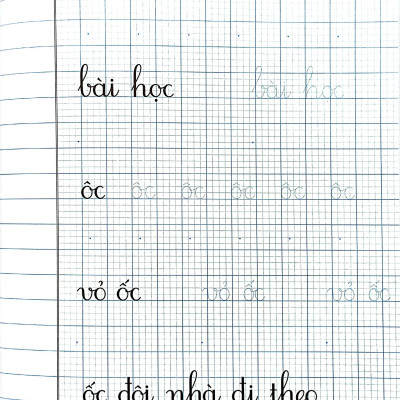 bài học bài học
ôc ôc ôc ôc ôc ôc
vỏ ốc vỏ ốc vỏ ốc
ốc đội nhà đi theo